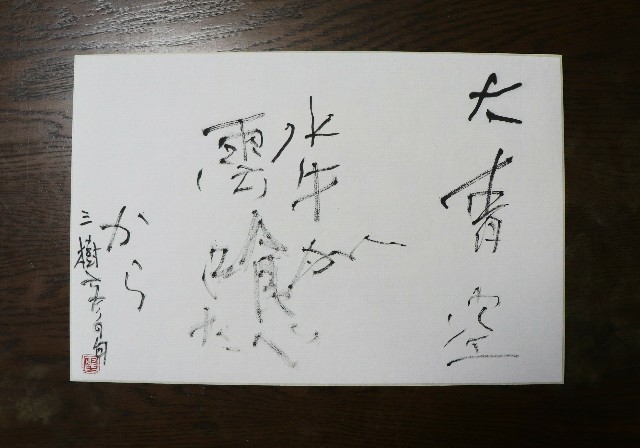 大青空
水牛が
雲喰べた
から
三樹彦